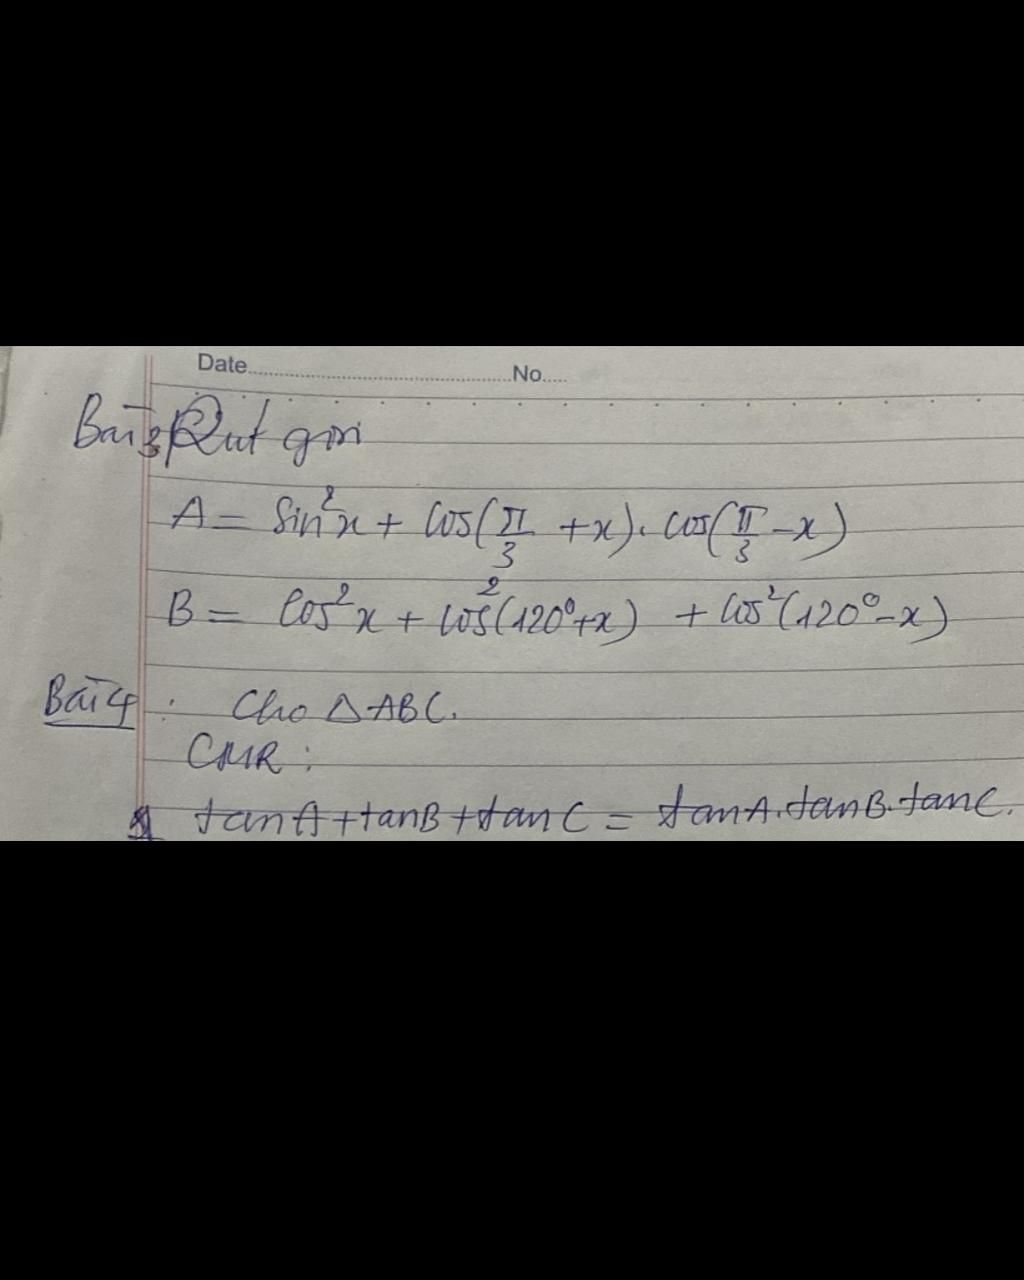 Date..........No.....
Bài 3 Rút gọn
A = sin²x + cos(π/3 + x). cos(π/3 - x)
B = cos²x + cos²(120⁰+x) + cos²(120⁰-x)
Bài 4 : Cho △ABC.
CMR :
tanA + tanB + tanC = tanA.tanB.tanC.